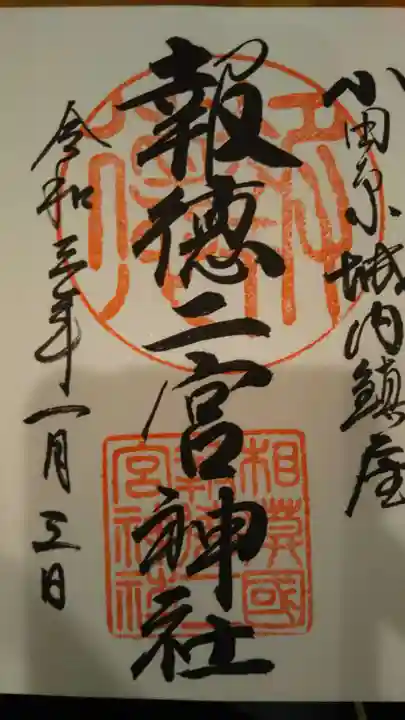 小田原城内鎮座
報徳二宮神社
令和三年一月三日
相模國
報徳二
宮神社